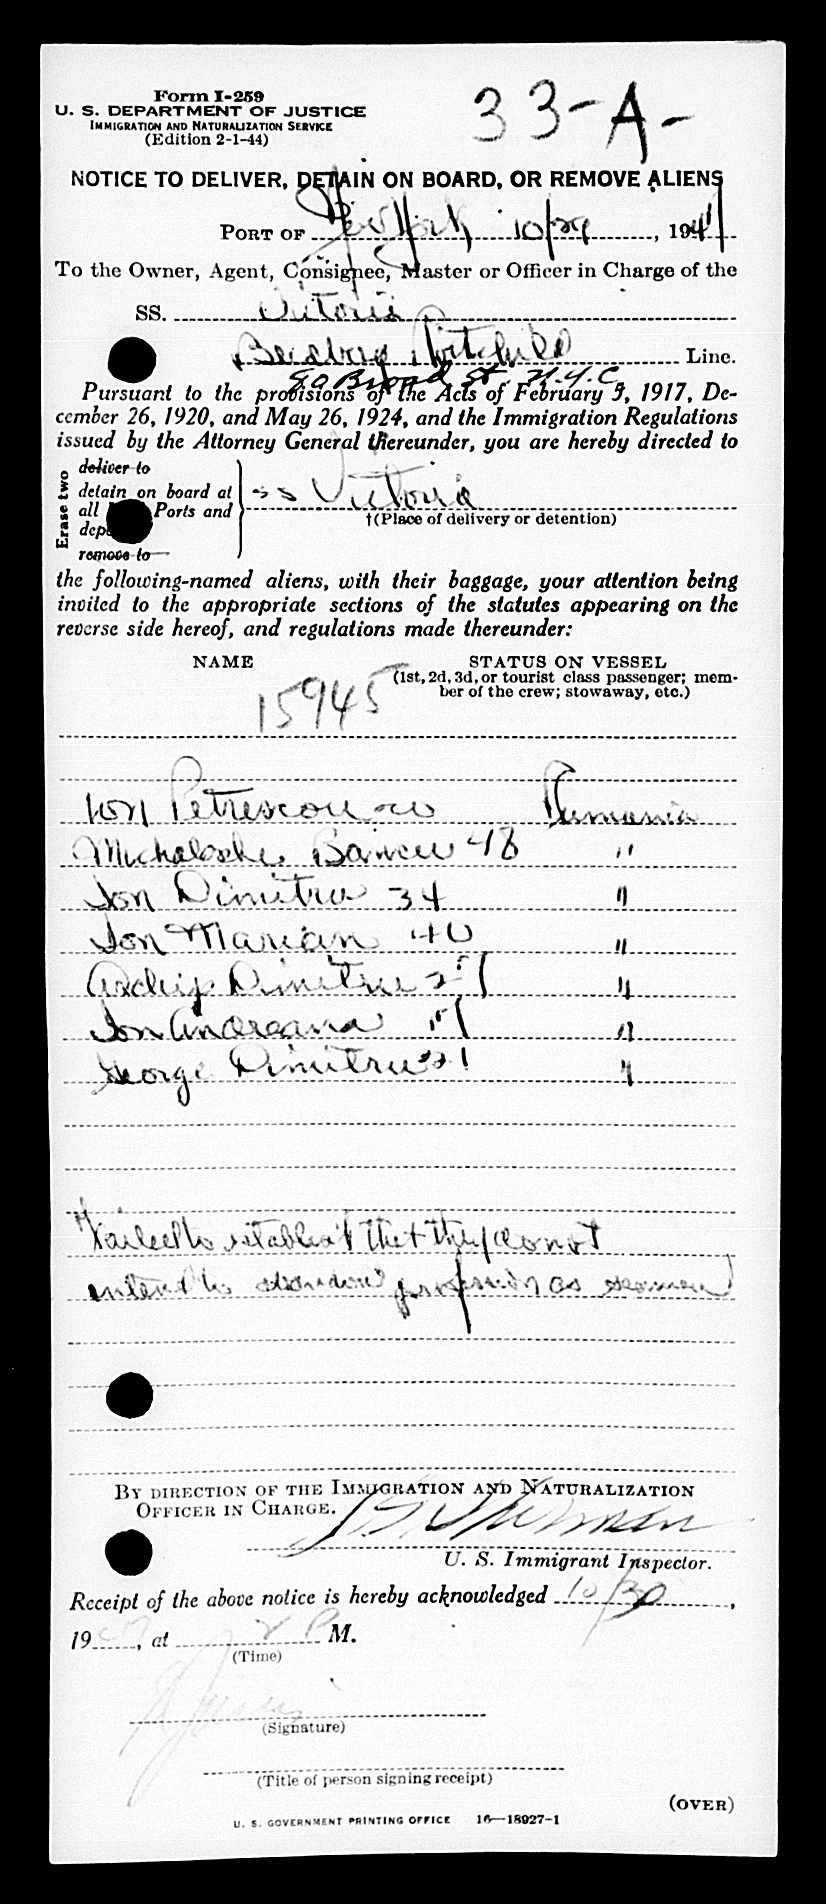 Form I-259
U. S. DEPARTMENT OF JUSTICE
IMMIGRATION AND NATURALIZATION SERVICE
(Edition 2-1-44)
33-A-
NOTICE TO DELIVER, DETAIN ON BOARD, OR REMOVE ALIENS
PORT OF New York 10/29, 194
To the Owner, Agent, Consignee, Master or Officer in Charge of the
SS. Victoria
Line.
80 Broad St. N.Y.C.
Pursuant to the provisions of the Acts of February 5, 1917, De-
cember 26, 1920, and May 26, 1924, and the Immigration Regulations
issued by the Attorney General thereunder, you are hereby directed to
Erase two
deliver to
detain on board at
all Ports and
remove to
SS Victoria
†(Place of delivery or detention)
the following-named aliens, with their baggage, your attention being
invited to the appropriate sections of the statutes appearing on the
reverse side hereof, and regulations made thereunder:
NAME STATUS ON VESSEL
(1st, 2d, 3d, or tourist class passenger; mem-
ber of the crew; stowaway, etc.)
15945
Ion Petrescou Rumania
48 "
Ion Dimitru 34 "
Ion Marian 40 "
Dimitru "
Ion Andreana "
George Dimitru "
Failed to establish that they do not
intend to abandon profession as seamen
BY DIRECTION OF THE IMMIGRATION AND NATURALIZATION
OFFICER IN CHARGE.
Sherman
U. S. Immigrant Inspector.
Receipt of the above notice is hereby acknowledged 10/30,
19, at 2 P M.
(Time)
(Signature)
(Title of person signing receipt)
(OVER)
U. S. GOVERNMENT PRINTING OFFICE 16—18927-1